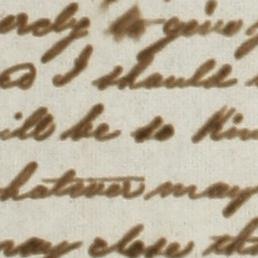 to give
I should
will be so kin
whatever may
may close tha